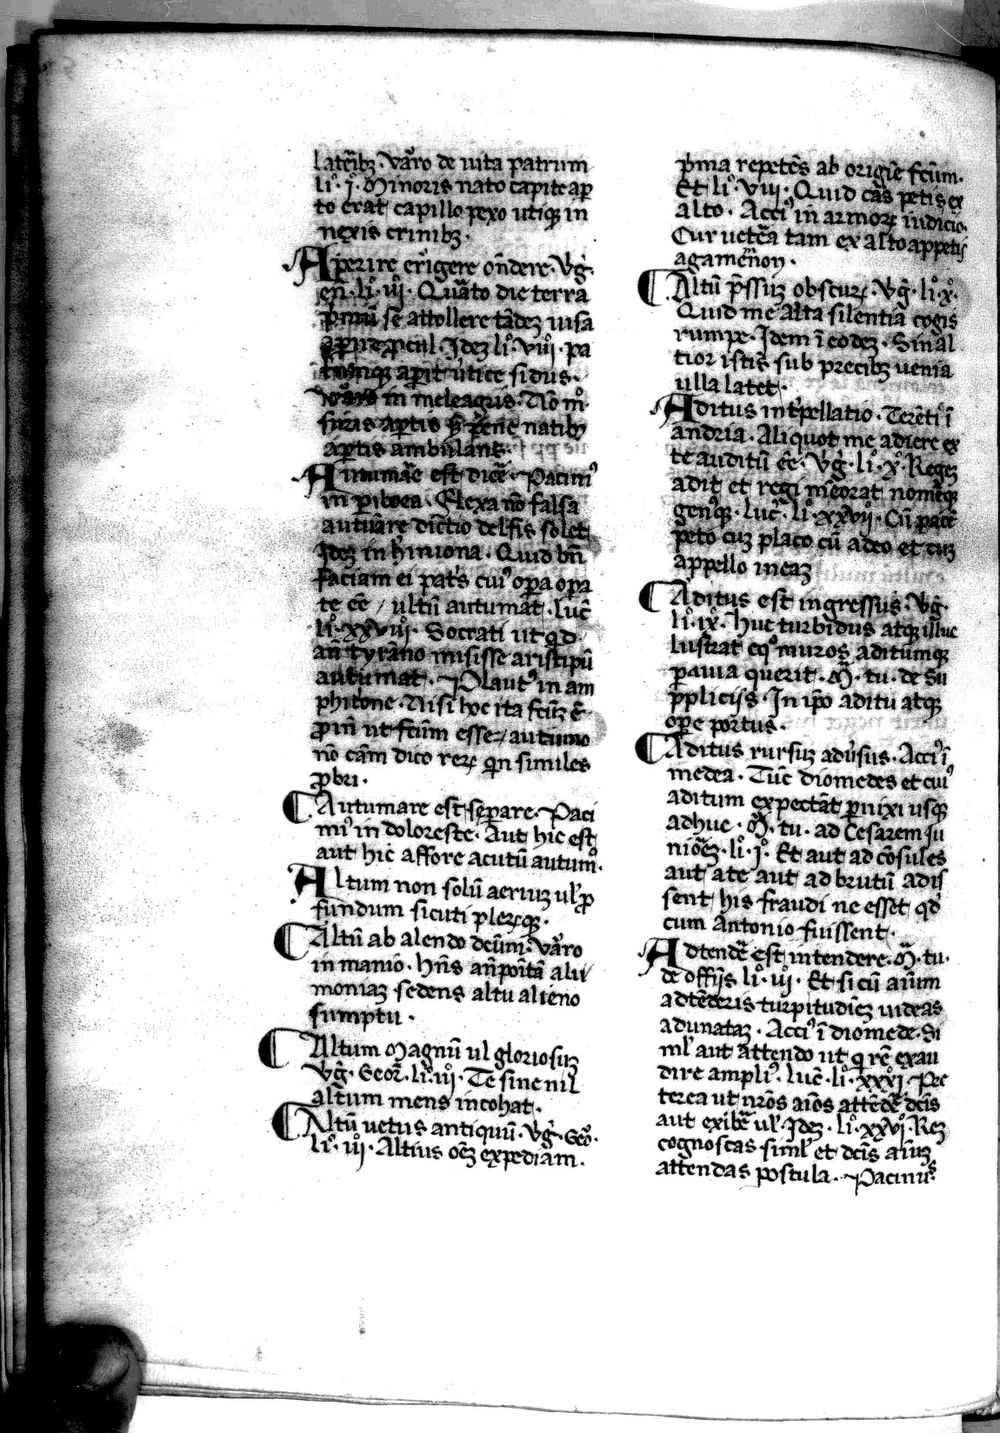 latẽibꝫ · Vaꝛ̃o de uita patrum
li° · i° · Minoris nato capite ap̲
to erat capillo pexo utiqꝫ in
nexis crinibꝫ ·
Aperire er̃igere oñdere · Vg̃ ·
eñ · li° · iii° · Quãto die terra
p̃mũ se attollere tãdeꝫ uisa
ap̲ire ꝓcul · Ideꝫ li° · viii° · pa
t̃umqꝫ ap̲it ũtice sidus ·
Vaꝛ̃o in meleagris · Nõ m°
natibꝫ
ap̲tis ambulans ·
Autumãe est dicẽ · Pacuuiꝰ
in p̲iboea · Flexa nõ falsa
autũare dictio delfis solet
Ideꝫ in hʼmiona · Quid bñ
faciam ei pat̃s cuiꝰ op̲a op̲a
te eẽ / ultũ autumat · luc̃
li° · xxviii° · Socrati ut qd̃
añ tyrãno misisse aristipũ
autumat · Plautꝰ in am
phit̃one · Nisi hoc ita fc̃m ẽ
ꝓin̄ ut fc̃um esse / autumo
nõ cãm dico reꝝ qin similes
ꝓbri ·
Autumare est sep̲are · Pacu
uiꝰ in doloreste · Aut hic est
aut hic affore acutũ autumꝰ ·
Altum non solũ aeriuꝫ ul̃ ꝓ
fundum sicuti pleꝝqꝫ ·
Altũ ab alendo dcũm · Vaꝛ̃o
in manio · Hñs añpoĩtã ali
moniaꝫ sedens altu alieno
sumptu ·
Altum Magnũ ul gloriosuꝫ
Vg̃ · Geor̃ · li° · iii° · Te sine nil̃
altum mens incohat ·
Altũ uetus antiquũ · Vg̃ · Geo° ·
li° · iii° · Altius oẽꝫ expediam ·
p̃ma repetẽs ab origiẽ fc̃um ·
Et li° · viii° · Quid cãs petis ex
alto · Acciꝰ in armoꝝ iudicio ·
Cur uetẽa tam ex alto appetis
agamẽnon ·
Altũ p̃ssuꝫ obscuꝝ · Vg̃ · li° · x° ·
Quid me alta silentia cogis
rumpe · Idem ĩ eodeꝫ · Sin al
tior istis sub precibꝫ uenia
ulla latet ·
Aditus int̃pellatio · Terẽtiꝰ ĩ
andria · Aliquot me adiere ex
te auditũ eẽ · Vg̃ · li° · x° · Regeꝫ
adit et regi meõrat nomẽqꝫ
genꝰqꝫ · Luc̃ · li° · xxvii° · Cũ pacẽ
peto cuꝫ placo cũ adeo et cuꝫ
appello meaꝫ
Aditus est ingressus · Vg̃ ·
li° · ix° · Huc turbidus atqꝫ illuc
lustrat eqꝰ muros aditumqꝫ
p̲ auia querit · M̃ · tu · de su
p̲pliciis · In ip̃o aditu atqꝫ
ore portus ·
Aditus rursuꝫ adũsus · Acciꝰ ĩ
medea · Tũc diomedes et cuiꝰ
aditum expectãt p̲uixi usqꝫ
adhuc · M̃ · tu · ad Cesarem iu
niõeꝫ · li° · i° · Et aut ad cõsules
aut ate aut ad brutũ adis
sent his fraudi ne esset qd̃
cum Antonio fuissent ·
Adtendẽ est intendere · M̃ · tu ·
de offiis li° · iii° · Et si cũ aĩum
adtẽderis turpitudiẽꝫ uideas
adunataꝫ · Acciꝰ ĩ diomede · Si
ml̃ aut attendo ut q rẽ exau
dire ampliꝰ · luc̃ · li° · xxxi° · Pre
terea ut nr̃os aĩos attẽdẽ dc̃is
aut exibẽ ul̃ · Ideꝫ · li° · xxvi° · Reꝫ
cognoscas siml̃ et dc̃is aĩuꝫ
attendas postula · Pacuuiꝰ